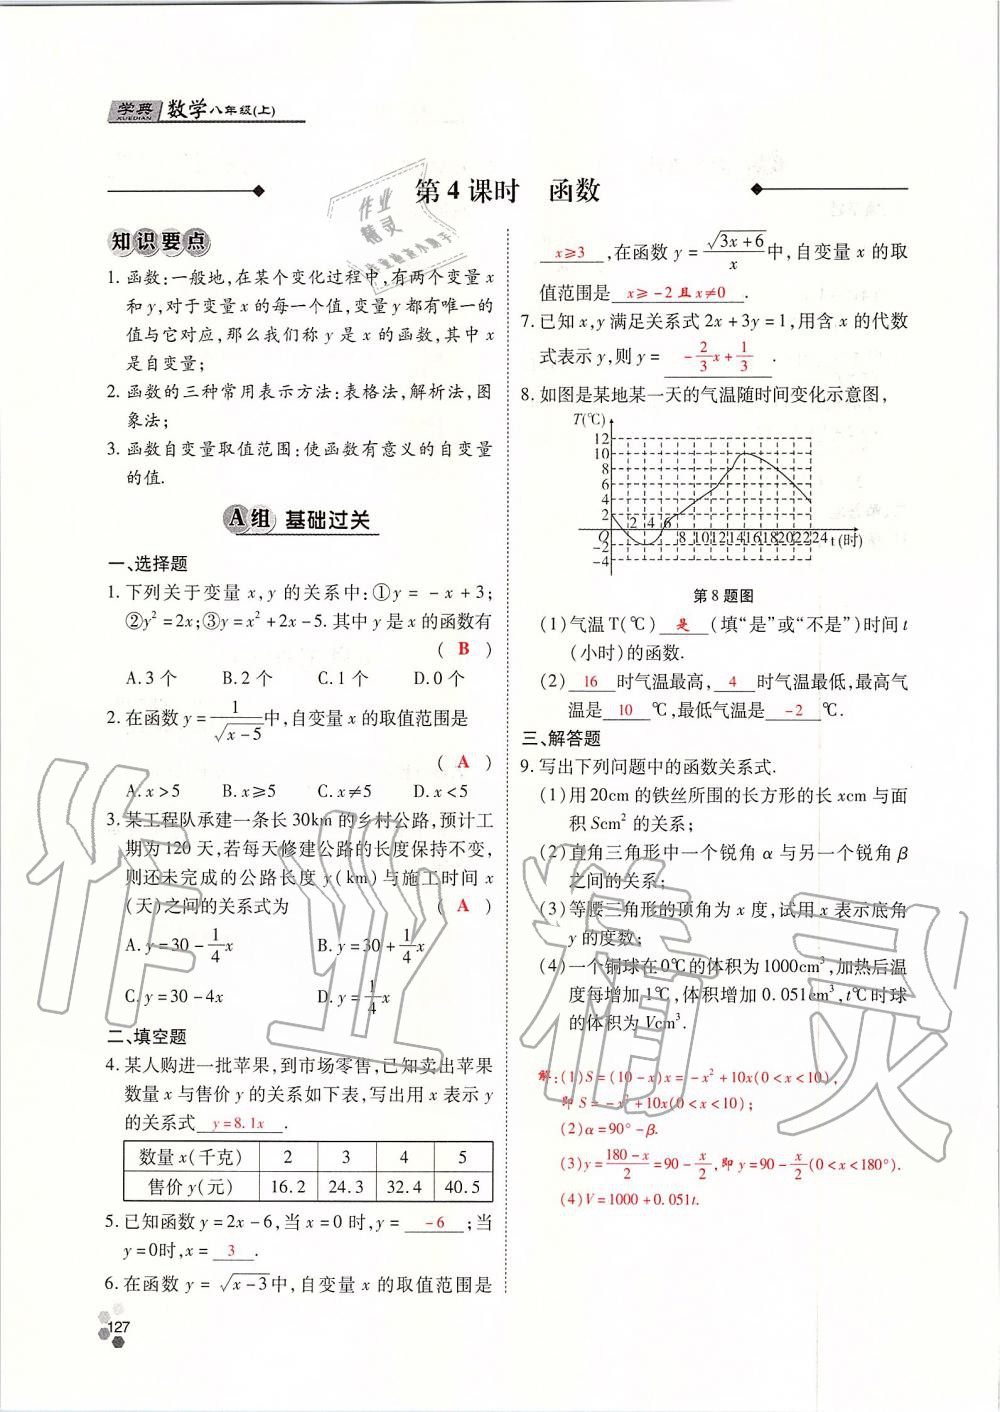 学典 数学八年级(上)
XUEDIAN
第4课时 函数
知识要点
1. 函数:一般地,在某个变化过程中,有两个变量 x
和 y,对于变量 x 的每一个值,变量 y 都有唯一的
值与它对应,那么我们称 y 是 x 的函数,其中 x
是自变量;
2. 函数的三种常用表示方法:表格法,解析法,图
象法;
3. 函数自变量取值范围:使函数有意义的自变量
的值.
A组 基础过关
一、选择题
1. 下列关于变量 x,y 的关系中:①y=-x+3;
②y²=2x;③y=x²+2x-5. 其中 y 是 x 的函数有
( B )
A.3个 B.2个 C.1个 D.0个
2. 在函数 y=1/√(x-5)中,自变量 x 的取值范围是
( A )
A.x>5 B.x≥5 C.x≠5 D.x<5
3. 某工程队承建一条长30km的乡村公路,预计工
期为120天,若每天修建公路的长度保持不变,
则还未完成的公路长度 y(km)与施工时间 x
(天)之间的关系式为 ( A )
A.y=30-1/4x B.y=30+1/4x
C.y=30-4x D.y=1/4x
二、填空题
4. 某人购进一批苹果,到市场零售,已知卖出苹果
数量 x 与售价 y 的关系如下表,写出用 x 表示 y
的关系式 y=8.1x .
数量x(千克) 2 3 4 5
售价y(元) 16.2 24.3 32.4 40.5
5. 已知函数 y=2x-6,当 x=0 时,y= -6 ;当
y=0时,x= 3 .
6. 在函数 y=√(x-3)中,自变量 x 的取值范围是
127
x≥3 ,在函数 y=√(3x+6)/x中,自变量 x 的取
值范围是 x≥-2且x≠0 .
7. 已知 x,y 满足关系式 2x+3y=1,用含 x 的代数
式表示 y,则 y= -2/3x+1/3 .
8. 如图是某地某一天的气温随时间变化示意图,
T(℃)
12
10
8
6
4
2
2 4 6
O
8 10 12 14 16 18 20 22 24 t(时)
-2
-4
第8题图
(1)气温T(℃) 是 (填“是”或“不是”)时间t
(小时)的函数.
(2) 16 时气温最高, 4 时气温最低,最高气
温是 10 ℃,最低气温是 -2 ℃.
三、解答题
9. 写出下列问题中的函数关系式.
(1)用20cm的铁丝所围的长方形的长 xcm 与面
积Scm² 的关系;
(2)直角三角形中一个锐角 α 与另一个锐角 β
之间的关系;
(3)等腰三角形的顶角为 x 度,试用 x 表示底角
y 的度数;
(4)一个铜球在0℃的体积为1000cm³,加热后温
度每增加1℃,体积增加0.051cm³,t℃时球
的体积为Vcm³.
解:(1)S=(10-x)x=-x²+10x(0<x<10),
即S=-x²+10x(0<x<10);
(2)α=90°-β.
(3)y=(180-x)/2=90-x/2,即y=90-x/2(0<x<180°).
(4)V=1000+0.051t.
作业精灵
作业
精灵